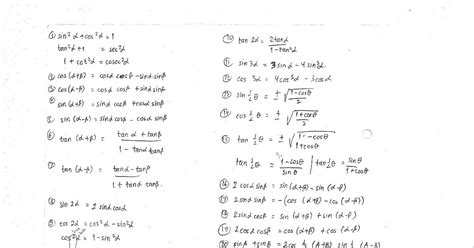 ① sin²α + cos²α = 1
tan²α + 1 = sec²α
1 + cot²α = cosec²α
② cos (α+β) = cosα cosβ - sinα sinβ
③ cos (α-β) = cosα cosβ + sinα sinβ
④ sin (α+β) = sinα cosβ + cosα sinβ
⑤ sin (α-β) = sinα cosβ - cosα sinβ
⑥ tan (α+β) = tanα + tanβ / 1 - tanα tanβ
⑦ tan (α-β) = tanα - tanβ / 1 + tanα tanβ
⑧ sin 2α = 2 sinα cosα
⑨ cos 2α = cos²α - sin²α
cos²α = 1 - sin²α
⑩ tan 2α = 2tanα / 1 - tan²α
⑪ sin 3α = 3 sinα - 4 sin³α
⑫ cos 3α = 4cos³α - 3cosα
⑬ sin ½ θ = ± √(1-cosθ / 2)
⑭ cos ½ θ = ± √(1+cosθ / 2)
⑮ tan ½ θ = ± √(1-cosθ / 1+cosθ)
tan ½ θ = 1-cosθ / sinθ | tan ½ θ = sinθ / 1+cosθ
⑯ 2 cosα sinβ = sin (α+β) - sin (α-β)
⑰ 2 sinα sinβ = - (cos (α+β) - cos (α-β))
⑱ 2 sinα cosβ = sin (α+β) + sin (α-β)
⑲ 2 cosα cosβ = cos (α+β) + cos (α-β)